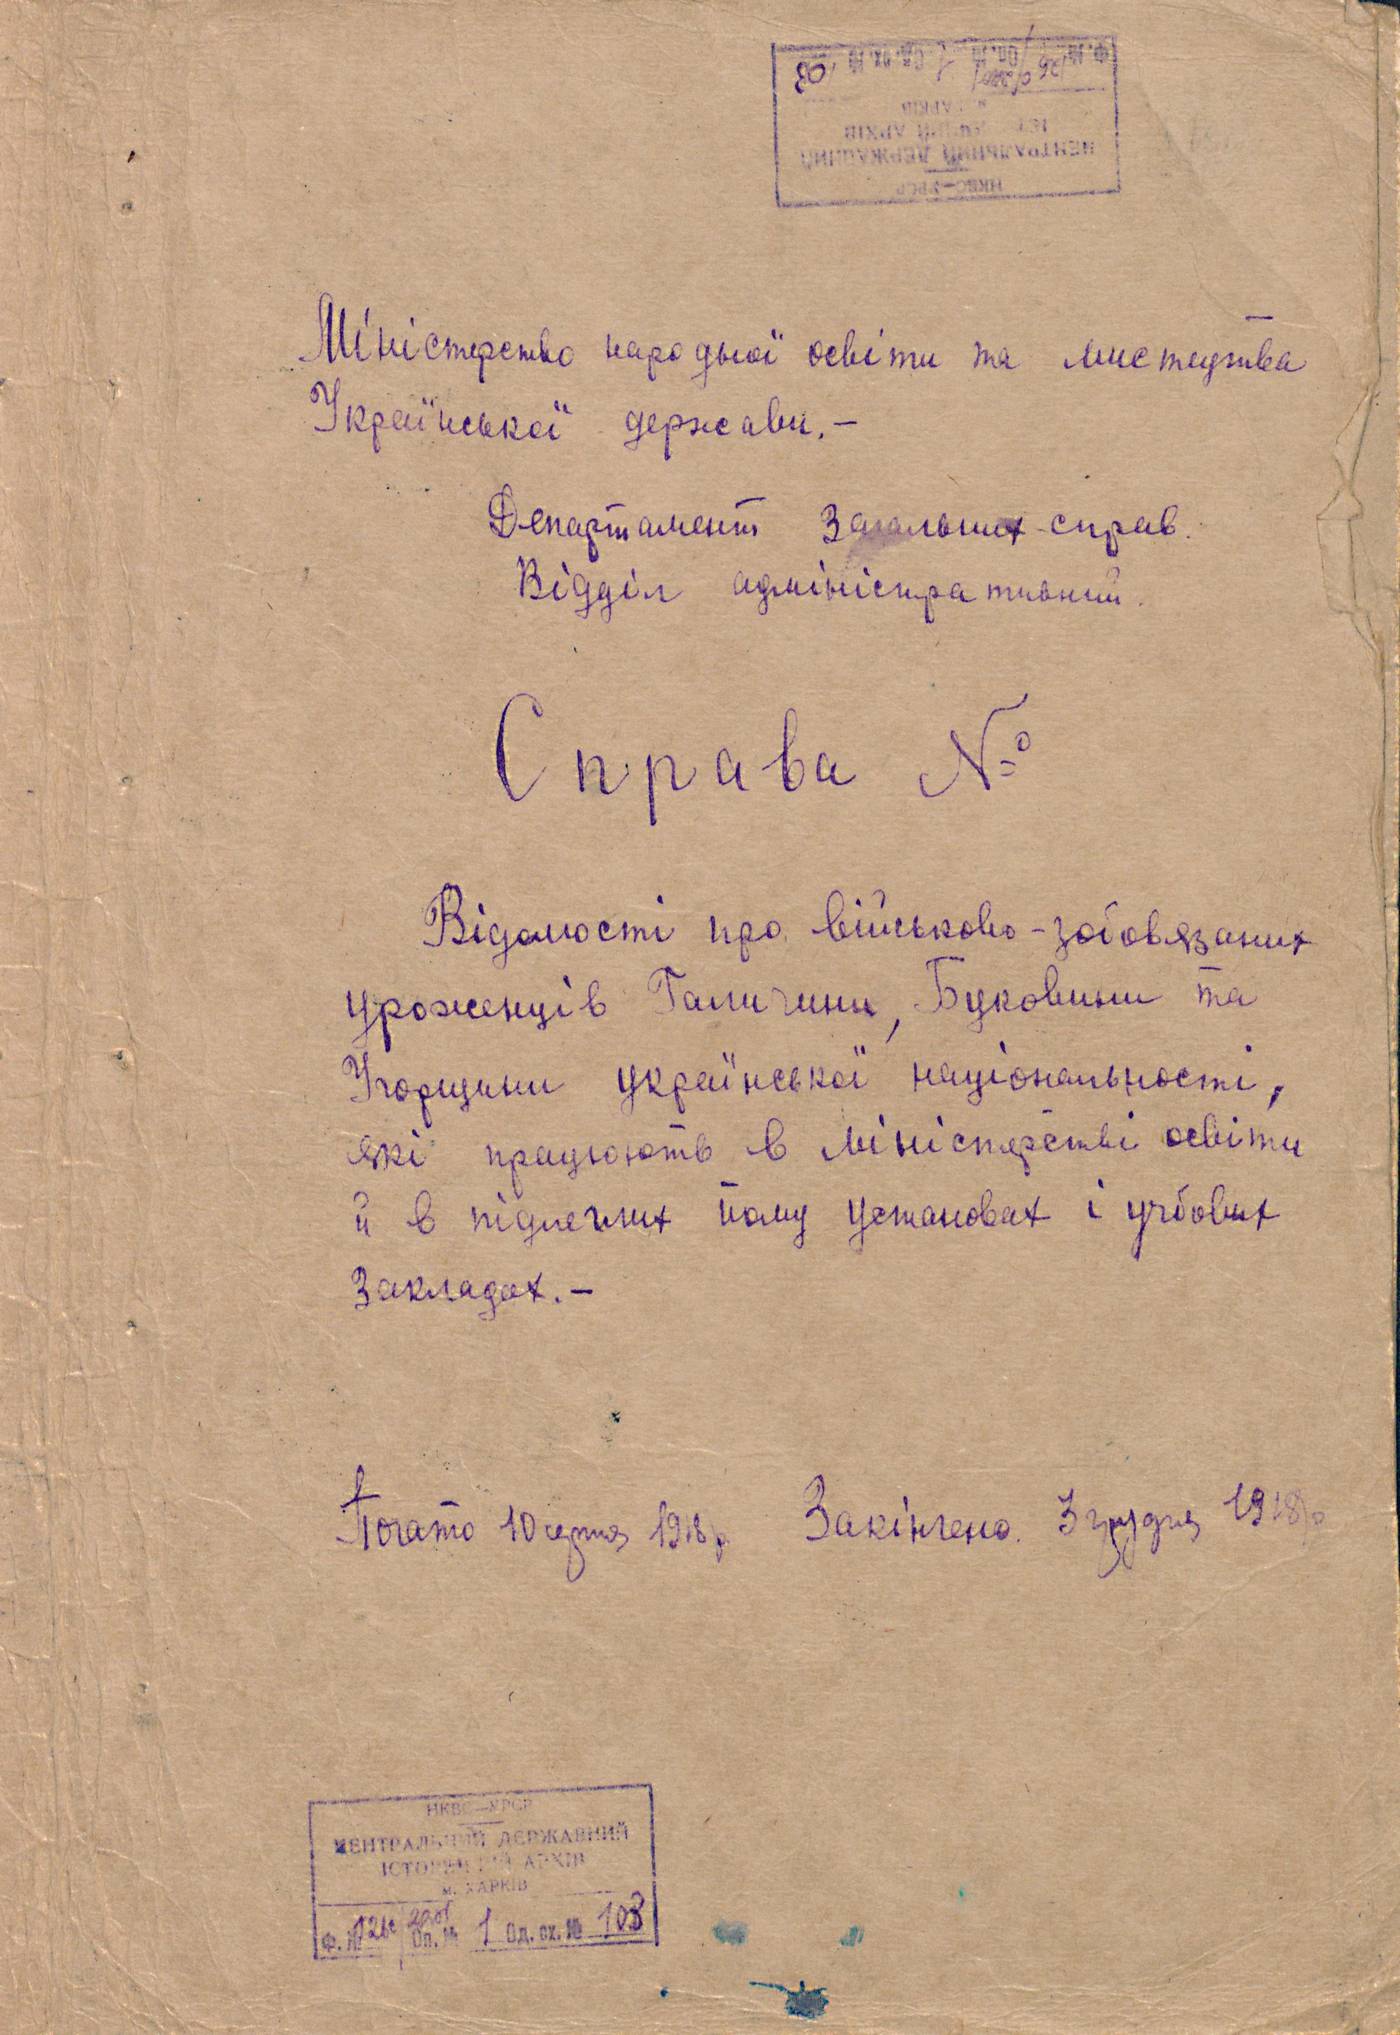 Ф. № Оп. № 1 Од. сх. № 103
м. ХАРКІВ
АРХІВ
ЦЕНТРАЛЬНИЙ ДЕРЖАВНИЙ
НКВС—УРСР
Міністерство народньої освіти та мистецтва
Української держави.—
Департамент Загальних справ.
Відділ адміністративний.
Справа №
Відомості про військово-зобовязаних
уроженців Галичини, Буковини та
Угорщини української національності,
які працюють в міністерстві освіти
й в підлеглих йому установах і учбових
закладах.—
Почато 10 серпня 1918 р. Закінчено. 3 грудня 1918 р.
НКВС—УРСР
ЦЕНТРАЛЬНИЙ ДЕРЖАВНИЙ
ІСТОРИЧНИЙ АРХІВ
м. ХАРКІВ
Ф. № Оп. № 1 Од. сх. № 103